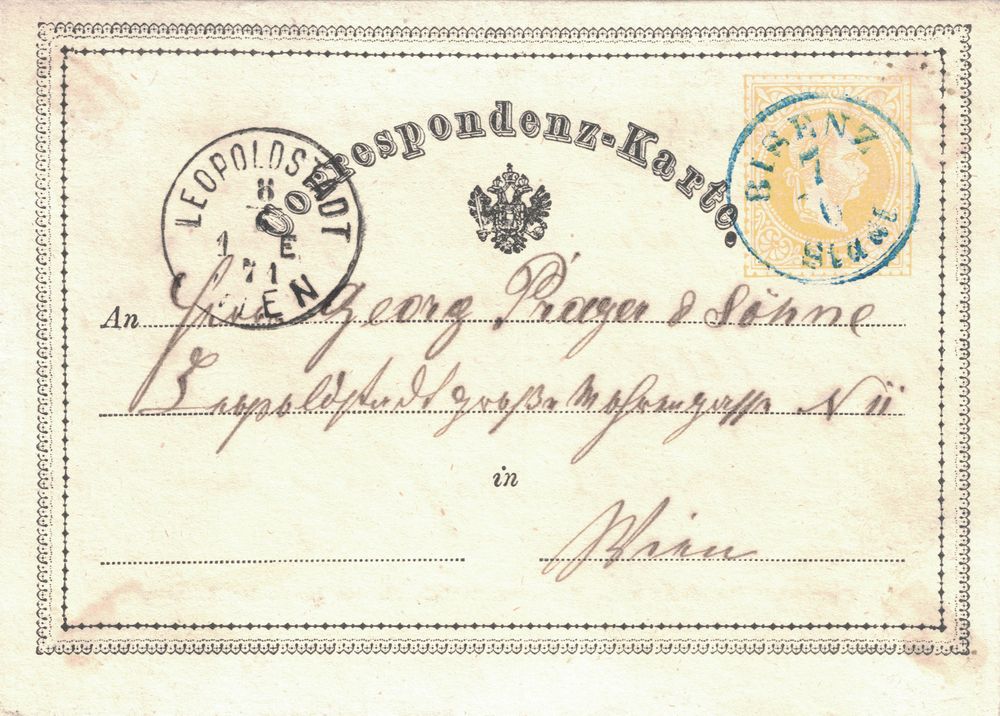 Correspondenz-Karte.
BISENZ
7
Stadt
LEOPOLDSTADT
8
1 E
71
WIEN
An Herrn Georg Prager & Söhne
Leopoldstadt große Mohrengasse N
in
Wien